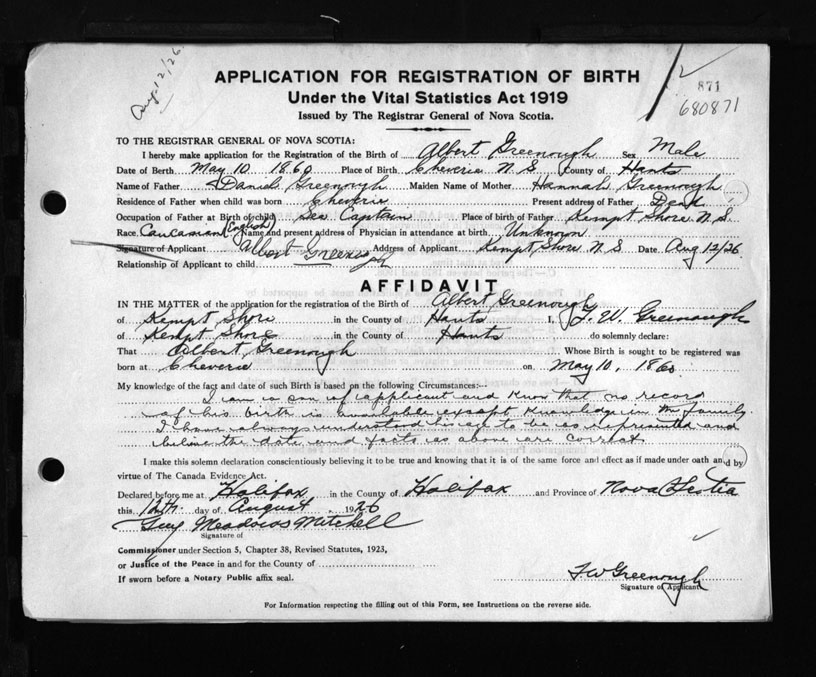 Aug 12/26
APPLICATION FOR REGISTRATION OF BIRTH
Under the Vital Statistics Act 1919
Issued by The Registrar General of Nova Scotia.
871
680871
TO THE REGISTRAR GENERAL OF NOVA SCOTIA:
I hereby make application for the Registration of the Birth of Albert Greenough Sex Male
Date of Birth May 10 1860 Place of Birth Cheverie N.S. County of Hants
Name of Father Daniel Greenough Maiden Name of Mother Hannah Greenough
Residence of Father when child was born Cheverie Present address of Father Dead
Occupation of Father at Birth of child Sea Captain Place of birth of Father Kempt Shore N.S.
Race Caucasian (English) Name and present address of Physician in attendance at birth Unknown
Signature of Applicant Albert Greenough Address of Applicant Kempt Shore N.S. Date Aug 12/26.
Relationship of Applicant to child
AFFIDAVIT
IN THE MATTER of the application for the registration of the Birth of Albert Greenough
of Kempt Shore in the County of Hants I, F. W. Greenough
of Kempt Shore in the County of Hants do solemnly declare:
That Albert Greenough Whose Birth is sought to be registered was
born at Cheverie on May 10, 1860
My knowledge of the fact and date of such Birth is based on the following Circumstances:—
I am a son of applicant and know that no record
of his birth is available except knowledge in the family
I have always understood his age to be as represented and
believe the date and facts as above are correct
I make this solemn declaration conscientiously believing it to be true and knowing that it is of the same force and effect as if made under oath and by
virtue of The Canada Evidence Act.
Declared before me at Halifax in the County of Halifax and Province of Nova Scotia
this 12th day of August 1926
Guy Meadows Mitchell
Signature of
Commissioner under Section 5, Chapter 38, Revised Statutes, 1923,
or Justice of the Peace in and for the County of
If sworn before a Notary Public affix seal.
F W Greenough
Signature of Applicant
For Information respecting the filling out of this Form, see Instructions on the reverse side.